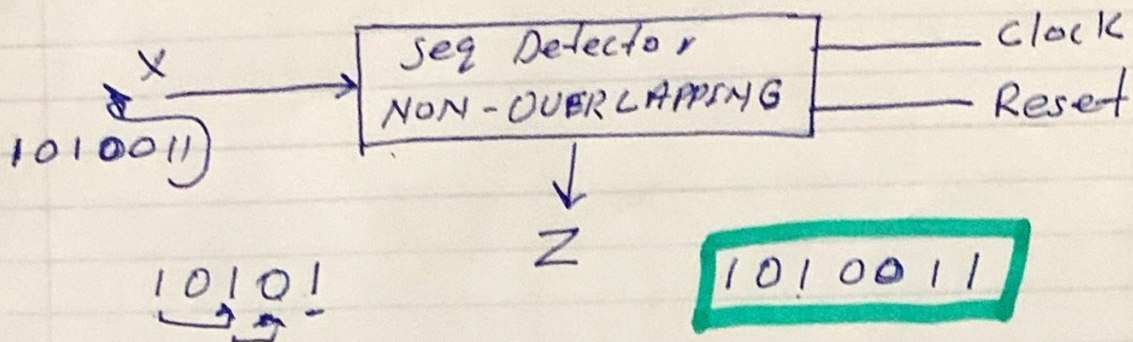 X
1010011
Seq Detector
NON-OVERLAPPING
Clock
Reset
Z
10101
1010011